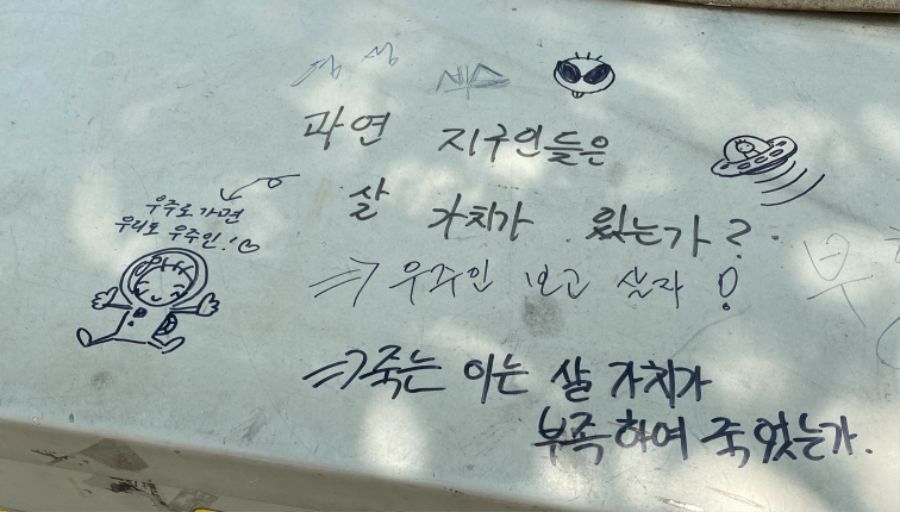 과연 지구인들은
살 가치가 있는가?
우주로 가면
우리도 우주인!♡
⇒ 우주인 보고 살자!
⇒죽는 이는 살 가치가
부족하여 죽었는가.